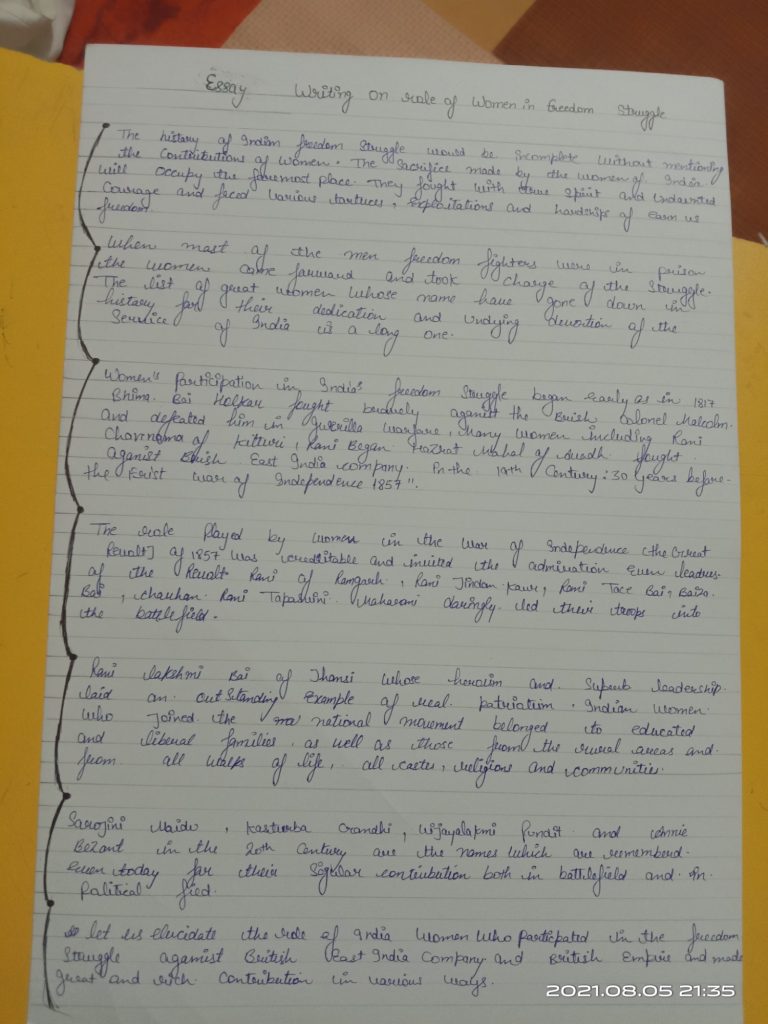 Essay Writing on role of Women in freedom Struggle
The history of Indian freedom Struggle would be incomplete without mentioning
the Contributions of women. The Sacrifice made by the women of India
will occupy the foremost place. They fought with true spirit and undaunted
Courage and faced various tortuces, Expoitations and hardships of earn us
freedom.
When most of the men freedom fighters were in prison
the women came forward and took charge of the Struggle.
The list of great women whose name have gone down in
history for their dedication and undying devotion of the
Service of India is a long one.
Women's Participation in India's freedom Struggle began early as in 1817
Bhima Bai Holkar fought bravely against the Brish Colonel Malcolm.
and defeated him in guerilla warfare, Many women including Rani
of Kitturi, Rani Began Hazrat Mahal of fought
aganist East India company. In the 19th Century: 30 years before
the war of Independence 1857".
The role Played by women in the war of Independence (the Great
Revolt] of 1857 was creditable and invited the admiration Even leadres
of the Revolt Rani of Ramgarh, Rani Jindan Kaur, Rani Tace Bai, Baiza
Bai, chauhan Rani Tapaswini Maharani daringly led their troops into
the battlefield.
Rani lakshmi Bai of Jhansi whose heroism and Superb leadership
laid an outStanding Example of real patriatism. Indian women
who joined the national movement belonged to educated
and liberal families, as well as those from the rural areas and
from all walks of life, all castes, religions and communities.
Sarojini Naidu, Kasturba Grandhi, Vijayalakmi Pundit and Annie
Bezant in the 20th Century are the names which are rememberd
Even today for their contribution both in battlefield and in
Political fied.
let us elucidate the role of India Women Who participated in the freedom
Struggle agamist British East India Company and British Empire and made
great and rich Contribution in various ways.
2021.08.05 21:35